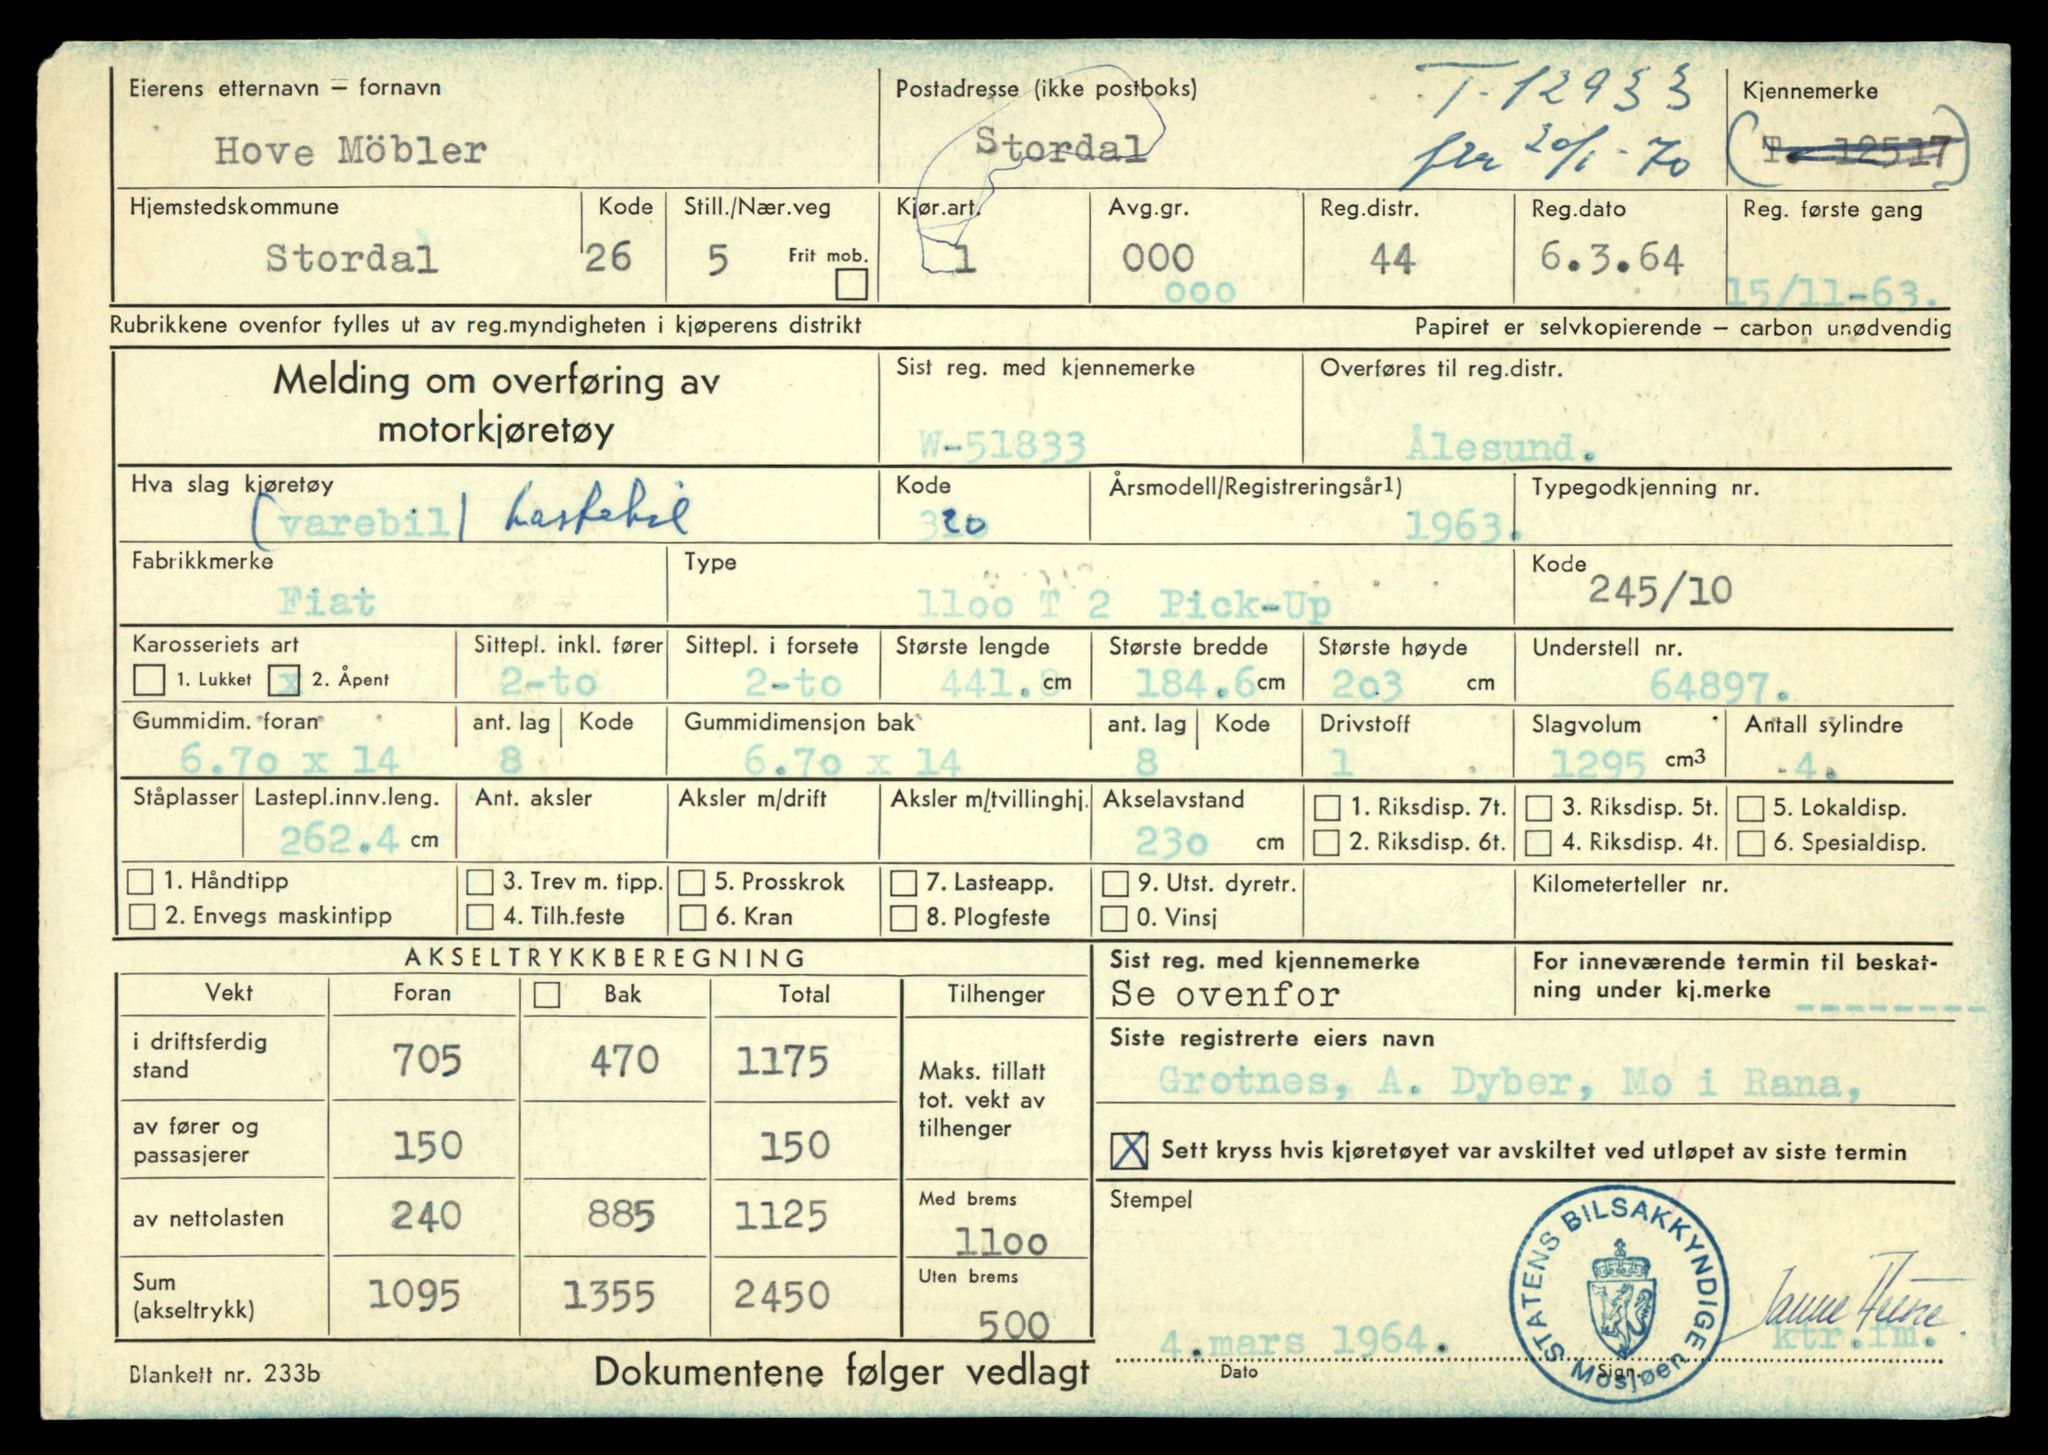 Eierens etternavn — fornavn
Hove Möbler
Postadresse (ikke postboks)
Stordal
T-12933
fra 20/1-70
Kjennemerke
(T. 12517)
Hjemstedskommune
Stordal
Kode
26
Still./Nær.veg
5
Frit mob.
Kjør.art.
1
Avg.gr.
000
000
Reg.distr.
44
Reg.dato
6.3.64
Reg. første gang
15/11-63.
Rubrikkene ovenfor fylles ut av reg.myndigheten i kjøperens distrikt
Papiret er selvkopierende — carbon unødvendig
Melding om overføring av
motorkjøretøy
Sist reg. med kjennemerke
W-51833
Overføres til reg.distr.
Ålesund.
Hva slag kjøretøy
(varebil) Lastebil
Kode
320
Årsmodell/Registreringsår1)
1963.
Typegodkjenning nr.
Fabrikkmerke
Fiat
Type
1100 T 2 Pick-Up
Kode
245/10
Karosseriets art
1. Lukket x 2. Åpent
Sittepl. inkl. fører
2-to
Sittepl. i forsete
2-to
Største lengde
441.8 cm
Største bredde
184.6 cm
Største høyde
203 cm
Understell nr.
64897.
Gummidim. foran
6.70 x 14
ant. lag
8
Kode
Gummidimensjon bak
6.70 x 14
ant. lag
8
Kode
Drivstoff
1
Slagvolum
1295 cm3
Antall sylindre
4.
Ståplasser
Lastepl.innv.leng.
262.4 cm
Ant. aksler
Aksler m/drift
Aksler m/tvillinghj.
Akselavstand
230 cm
1. Riksdisp. 7t.
2. Riksdisp. 6t.
3. Riksdisp. 5t.
4. Riksdisp. 4t.
5. Lokaldisp.
6. Spesialdisp.
1. Håndtipp
2. Envegs maskintipp
3. Trev m. tipp.
4. Tilh.feste
5. Prosskrok
6. Kran
7. Lasteapp.
8. Plogfeste
9. Utst. dyretr.
0. Vinsj
Kilometerteller nr.
AKSELTRYKKBEREGNING
Vekt Foran Bak Total Tilhenger
i driftsferdig
stand
705 470 1175
av fører og
passasjerer
150 150
av nettolasten
240 885 1125
Sum
(akseltrykk)
1095 1355 2450
Maks. tillatt
tot. vekt av
tilhenger
Med brems
1100
Uten brems
500
Sist reg. med kjennemerke
Se ovenfor
For inneværende termin til beskat-
ning under kj.merke --------
Siste registrerte eiers navn
Grotnes, A. Dyber, Mo i Rana,
X Sett kryss hvis kjøretøyet var avskiltet ved utløpet av siste termin
Stempel
STATENS BILSAKKYNDIGE
Mosjøen
4.mars 1964.
ktr.fm.
Dato
Sign.
Blankett nr. 233b
Dokumentene følger vedlagt